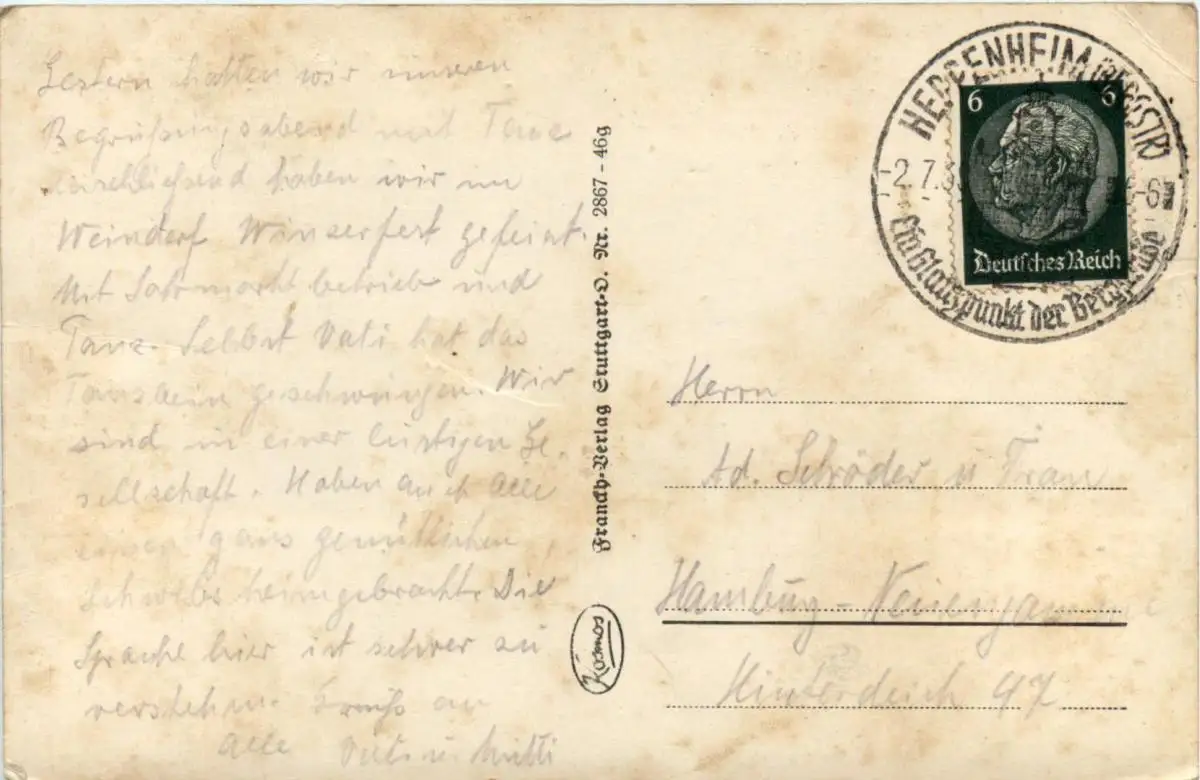 Gestern hatten wir unseren
Begrüßungsabend mit Tanz
anschließend haben wir im
Weindorf Winzerfest gefeiert.
Mit Jahrmarkt betrieb und
Tanz. Selbst Vati hat das
Tanzbein geschwungen. Wir
sind in einer lustigen Ge-
sellschaft. Haben auch alle
einen ganz gemütlichen
heimgebracht. Die
Sprache hier ist schwer zu
verstehn. Gruß an
alle Vati u Mutti
Franckh-Verlag Stuttgart-O. Nr. 2867 - 46g
Kosmos
HEPPENHEIM (BERGSTR)
-2.7.
5-6
Ein Glanzpunkt der Bergstraße
6 6
Deutsches Reich
Herrn
Ad. Schröder u Frau
Hamburg - Neuengamme
Hinterdeich 97